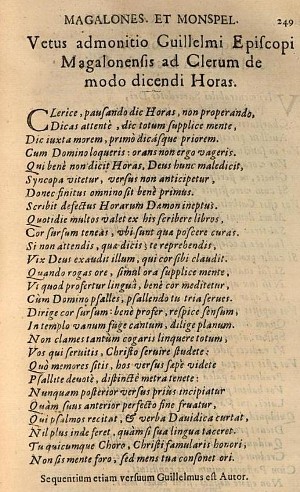 MAGALONES. ET MONSPEL. 249
Vetus admonitio Guillelmi Episcopi
Magalonensis ad Clerum de
modo dicendi Horas.
CLerice, pausando dic Horas, non properando,
Dicas attentè, dic totum supplice mente,
Dic iuxta morem, primò dicásque priorem.
Cum Domino loqueris: orans non ergo vageris.
Qui benè non dicit Horas, Deus hunc maledicit,
Syncopa vitetur, versus non anticipetur,
Donec finitus omninò sit benè primus.
Scribit defectus Horarum Damon ineptus.
Quotidie multos valet ex his scribere libros,
Cor sursum teneas, vbi sunt qua poscere curas.
Si non attendis, qua dicis; te reprehendis,
Vix Deus exaudit illum, qui cor sibi claudit.
Quando rogas ore, simul ora supplice mente,
Vi quod profertur linguâ, benè cor meditetur,
Cùm Domino psalles, psallendo tu tria serues.
Dirige cor sursum: benè profer, respice sensum,
In templo vanum fuge cantum, dilige planum.
Non clames tantùm cogaris linquere totum,
Vos qui seruitis, Christo seruire studete:
Quò memores sitis, hos versus sæpè videte
Psallite deuotè, distinctè metra tenete:
Nunquam posterior versus priùs incipiatur
Quàm suus anterior perfecto fine fruatur,
Qui psalmos recitat, & verba Dauidica curtat,
Nil plus inde feret, quàm si sua lingua taceret.
Tu quicumque Choro, Christi famularis honori,
Non sis mente foro, sed mens tua consonet ori.
Sequentium etiam versuum Guillelmus est Autor.